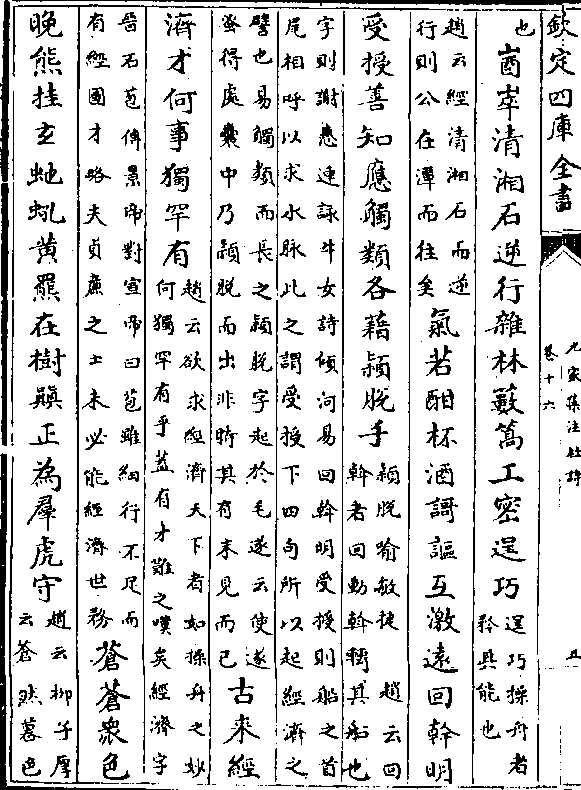 欽定四庫全書
九家集注杜詩
卷十六
五
也
崷崒清湘石逆行雜林藪篙工密逞巧
逞巧操舟者
矜其能也
趙云經清湘石而逆
行則公在潭而往矣
氣若酣杯酒謌謳互激遠回斡明
受授善知應觸類各藉穎脫手
穎脫喻敏捷
趙云回
斡者回動斡轉其船也
字則謝惠連詠牛女詩傾河易回斡明受授則船之首
尾相呼以求水脉此之謂受授下四句所以起經濟之
譬也易觸類而長之穎脫字起於毛遂云使遂
蚤得處囊中乃穎脫而出非特其有末見而已
古來經
濟才何事獨罕有
趙云欲求經濟天下者如操舟之妙
何獨罕有乎蓋有才難之嘆矣經濟字
晉石苞傳景帝對宣帝曰苞雖細行不足而
有經國才略夫貞廉之士未必能經濟世務
蒼蒼衆色
晚熊挂玄虵吼黄羆在樹顛正為羣虎守
趙云柳子厚
云蒼然暮色